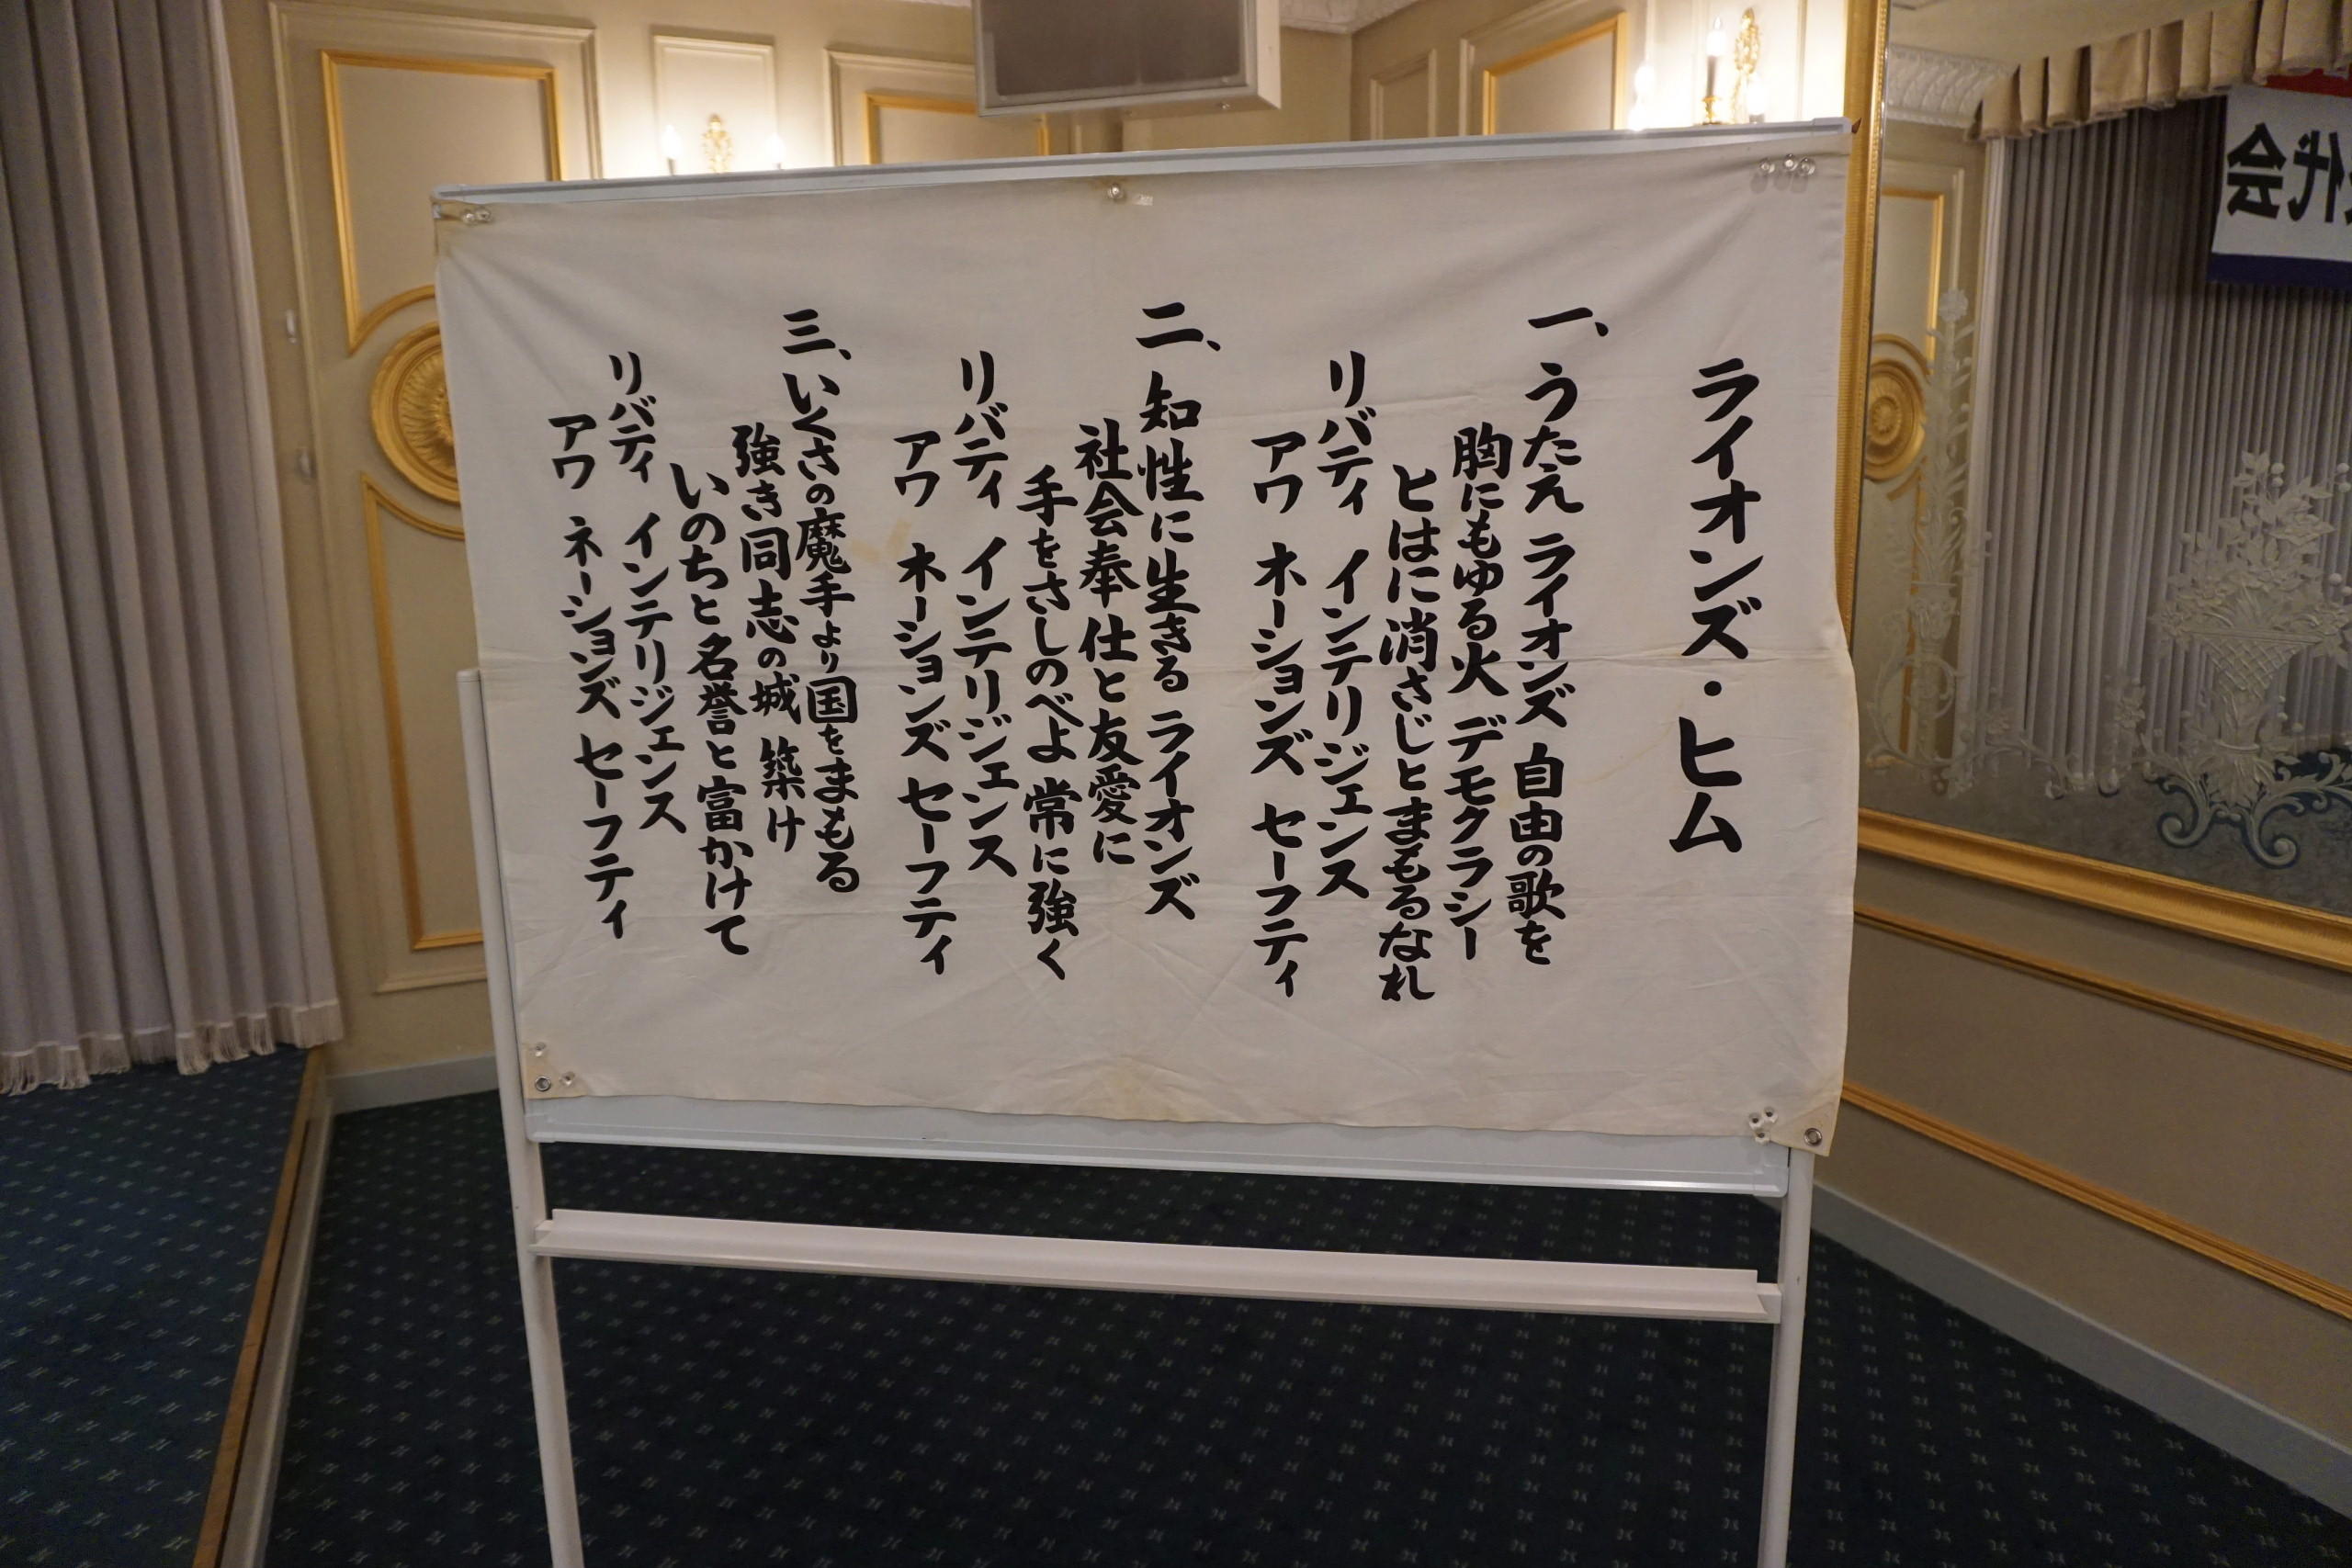 ライオンズ・ヒム
一、うたえ ライオンズ 自由の歌を
胸にもゆる火 デモクラシー
とはに消さじとまもるなれ
リバティ インテリジェンス
アワ ネーションズ セーフティ
二、知性に生きる ライオンズ
社会奉仕と友愛に
手をさしのべよ 常に強く
リバティ インテリジェンス
アワ ネーションズ セーフティ
三、いくさの魔手より国をまもる
強き同志の城 築け
いのちと名誉と富かけて
リバティ インテリジェンス
アワ ネーションズ セーフティ
代会